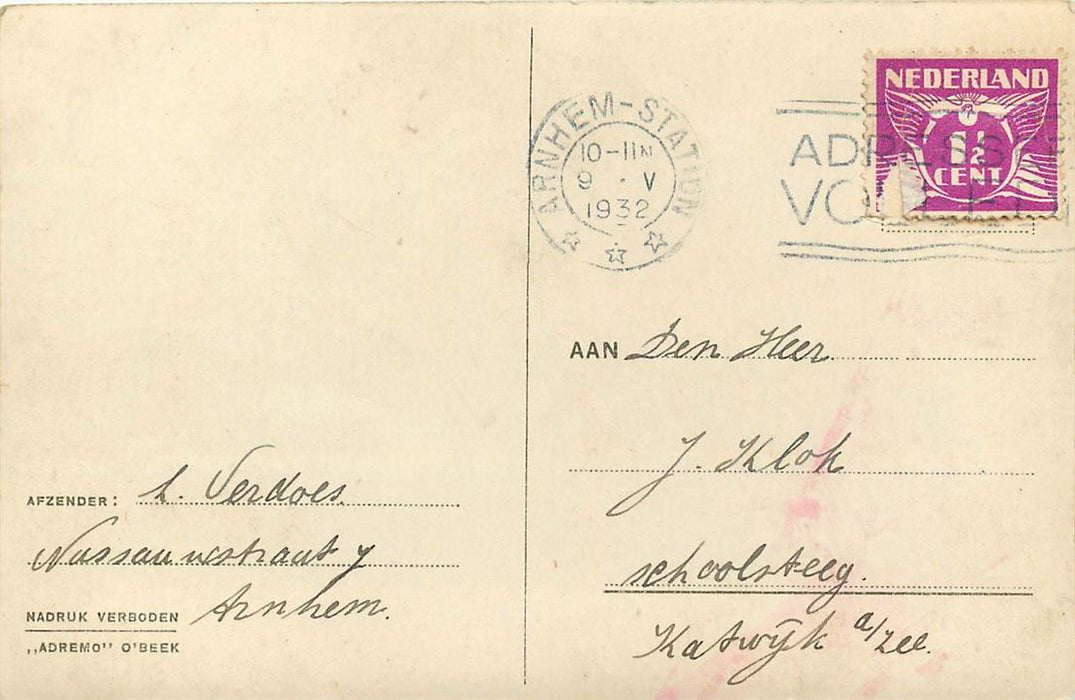 ARNHEM-STATION
10-11N
9 · V
1932
ADRESSEER
VOLLEDIG
NEDERLAND
1½
CENT
AAN Den Heer
J. Klok
schoolsteeg.
Katwijk a/zee.
AFZENDER: L. Verdoes.
Nassauwstraat 7
Arnhem.
NADRUK VERBODEN
„ADREMO" O'BEEK